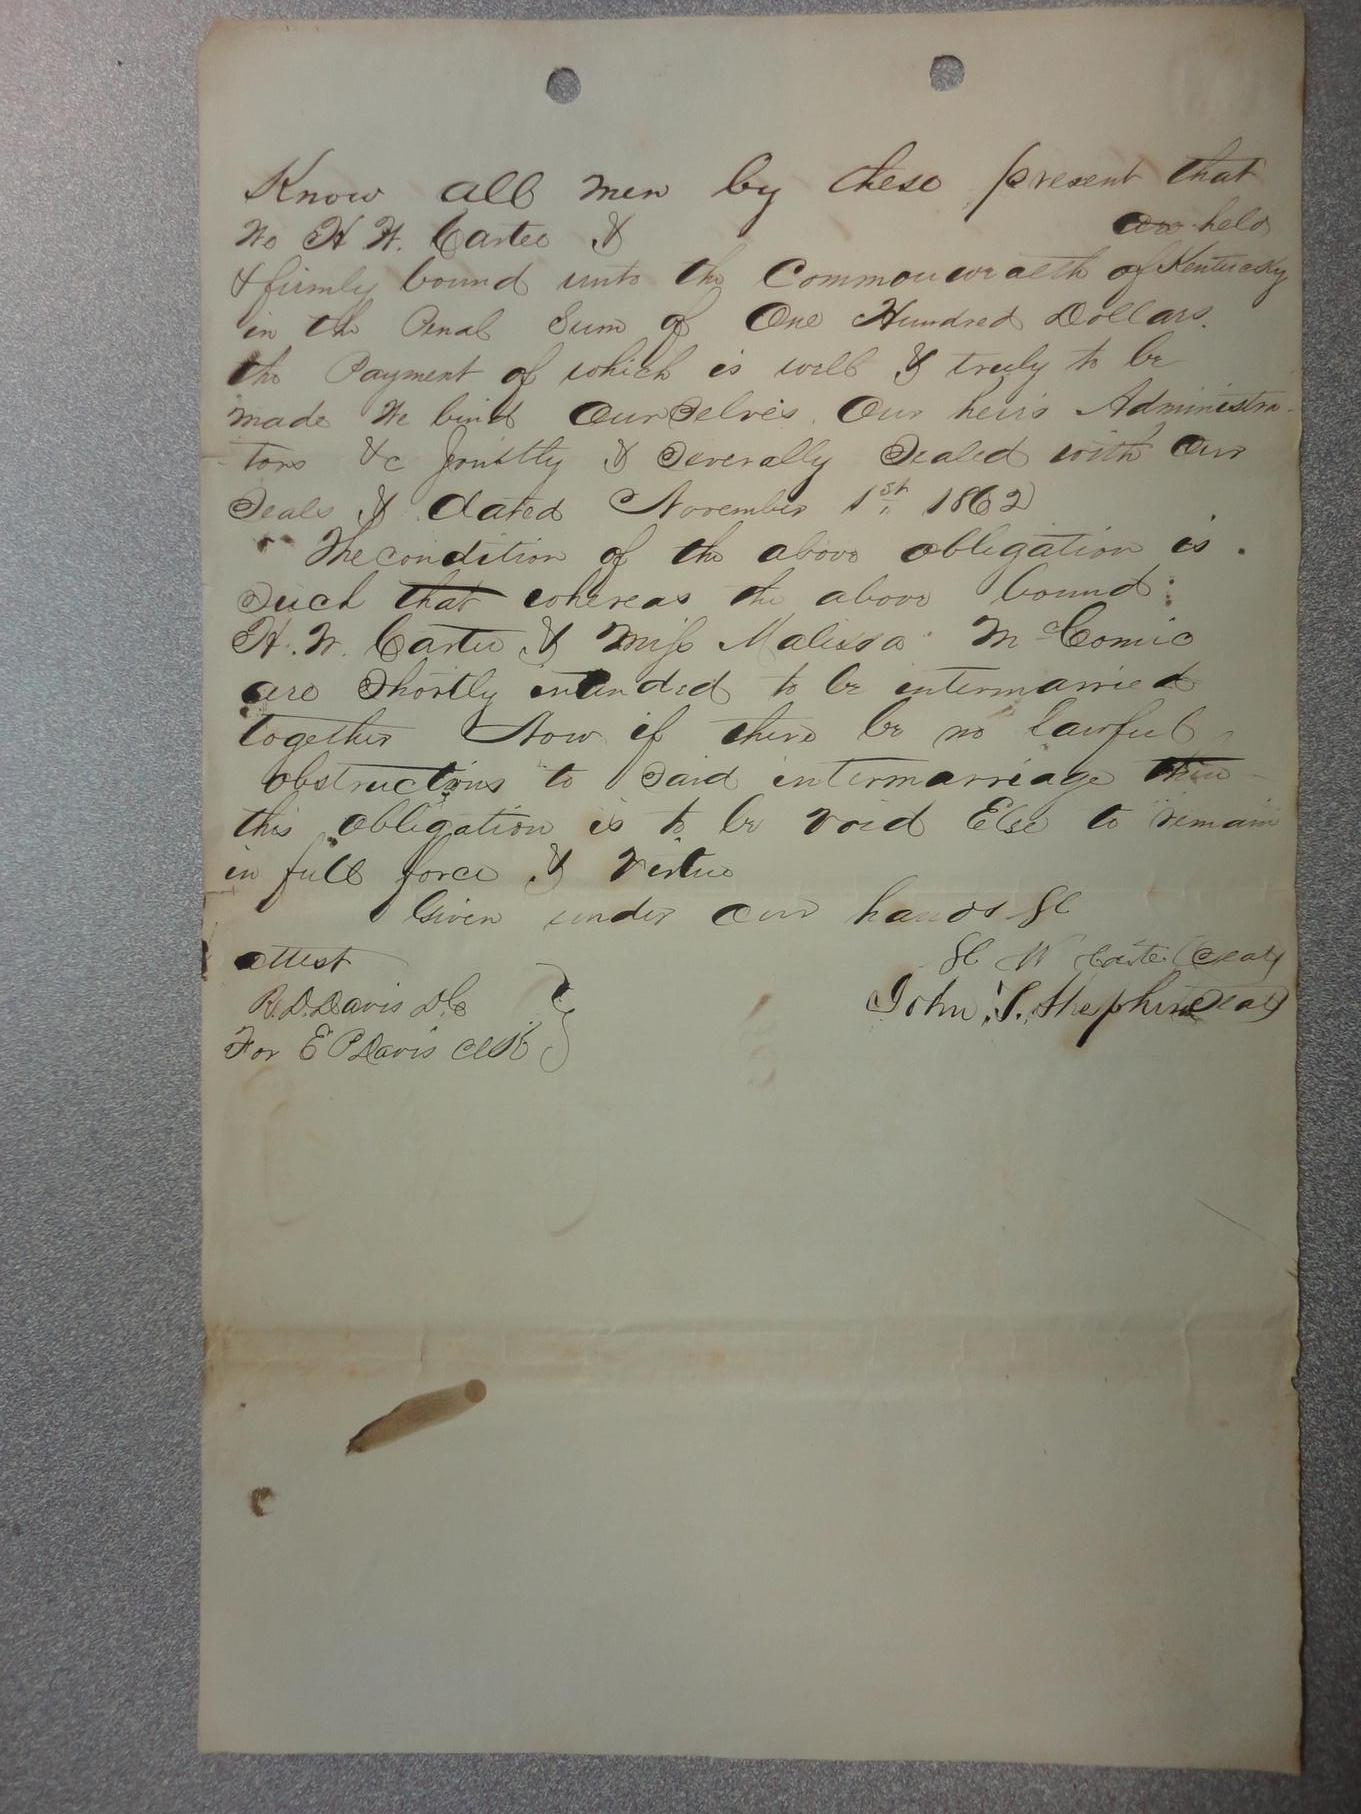 Know all men by these present that
We H W. Carter & are held
& firmly bound unto the Commonwealth of Kentucky
in the Penal Sum of One Hundred Dollars.
the Payment of which is well & truly to be
made We bind OurSelves Our heirs Administra-
tors &c Jointly & Severally Sealed with Our
Seals & dated November 1st 1862
The condition of the above obligation is
Such that whereas the above bound
H. W. Carter & Miss Malissa McComic
are Shortly intended to be intermarried
together Now if there be no lawful
obstructions to Said intermarriage then
this obligation is to be void Else to remain
in full force & Virtue
Given under our hands &c
attest H W Carter (Seal)
R. D. Davis D.C John S. (Seal)
For E P Davis Clk